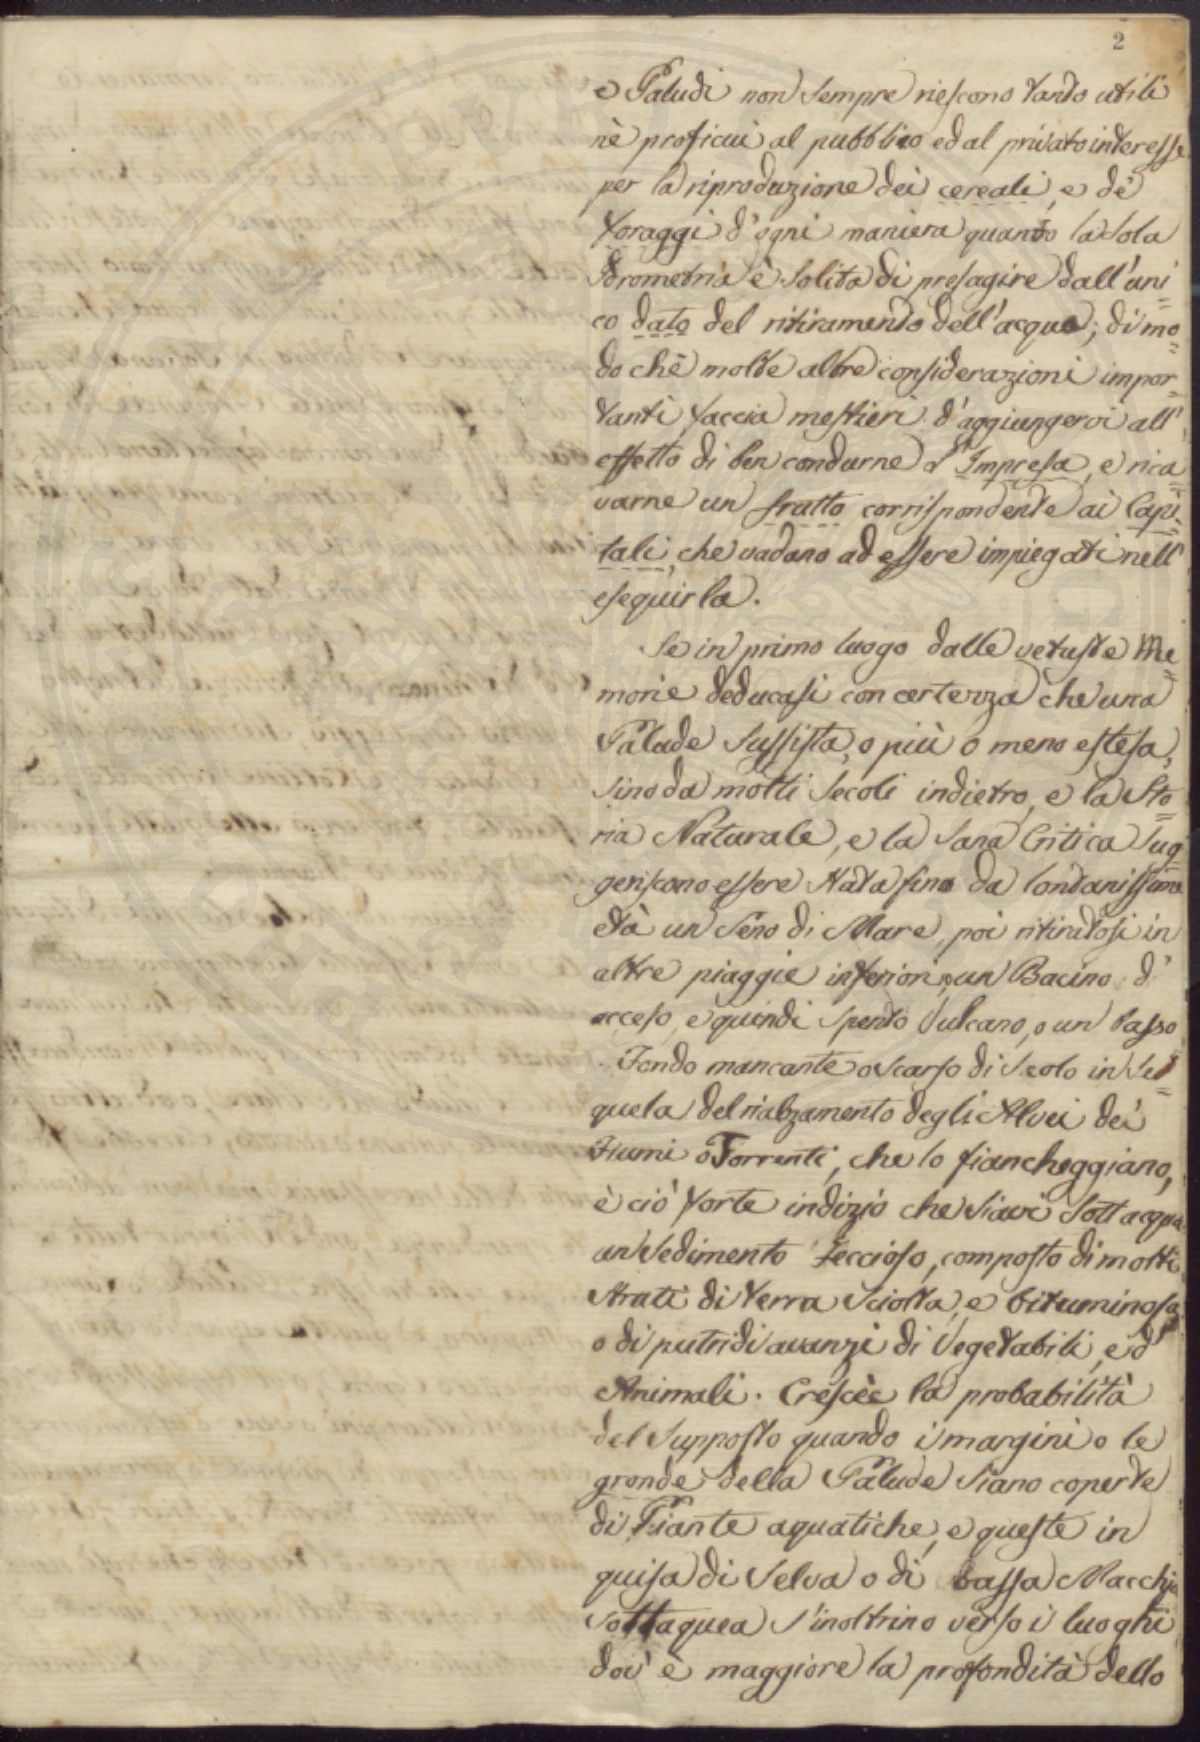 2
e Paludi non sempre riescono tanto utili
nè proficui al pubblico ed al privato interesse
per la riproduzione dei cereali, e de'
foraggi d'ogni maniera quanto la sola
Idrometria è solita di presagire dall'uni=
co dato del ritiramento dell'acque; di mo=
do chè molte altre considerazioni impor=
tanti faccia mestieri d'aggiungervi all'
effetto di ben condurne l'Impresa, e rica=
varne un frutto corrispondente ai Capi=
tali, che vadano ad essere impiegati nell'
eseguirla.
Se in primo luogo dalle vetuste Me=
morie deducasi con certezza che una
Palude sussista, o più o meno estesa,
sino da molti secoli indietro, e la Sto=
ria Naturale, e la sana Critica sug=
geriscono essere stata fino da lontanissima
età un Seno di Mare, poi ritiratosi in
altre piaggie inferiori, o un Bacino d'
acceso, e quindi spento Vulcano, o un basso
Fondo mancante o scarso di scolo in se=
quela del rialzamento degli Alvei dei
Fiumi o Torrenti, che lo fiancheggiano,
è ciò forte indizio che siavi sott'acqua
un sedimento feccioso, composto di molti
strati di terra sciolta, e bituminosa,
o di putridi avanzi di Vegetabili, e d'
Animali. Cresce la probabilità
del supposto quando i margini o le
gronde della Palude siano coperte
di Piante aquatiche, e queste in
guisa di Selva o di bassa Macchia
sottaquea s'inoltrino verso i luoghi
dov' è maggiore la profondità dello